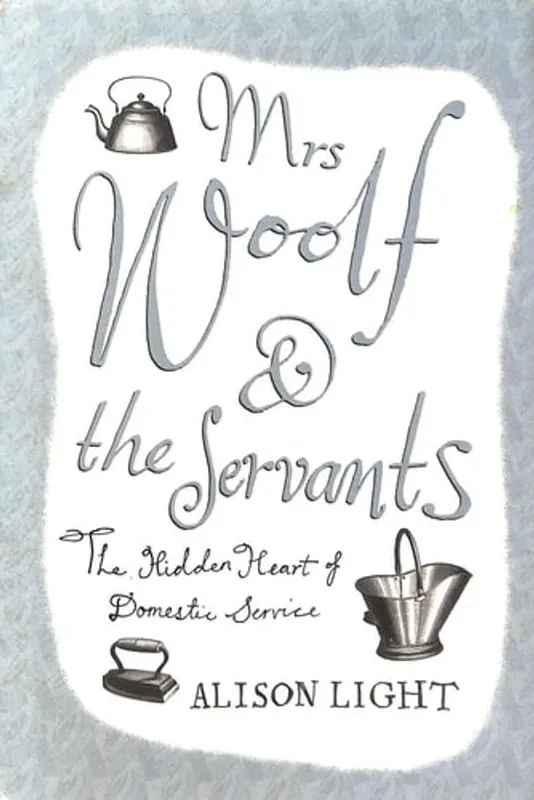 Mrs
Woolf
&
the Servants
The Hidden Heart of
Domestic Service
ALISON LIGHT